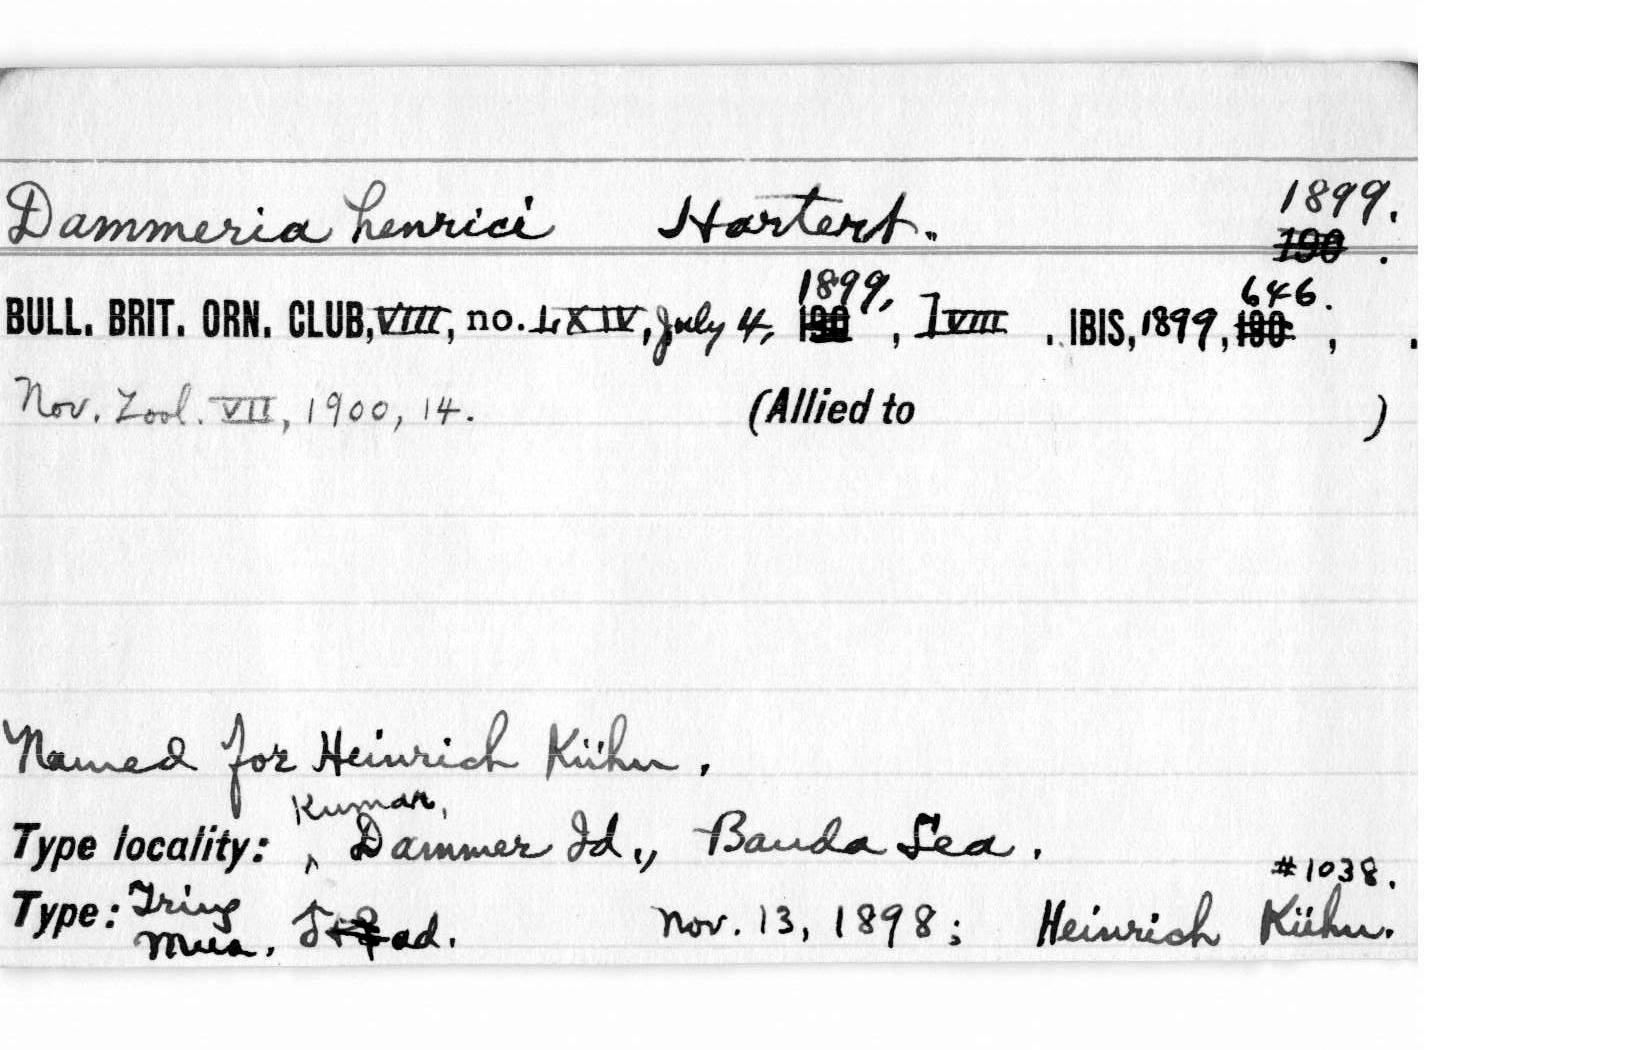 Dammeria henrici Hartert. 1899.
190 .
BULL. BRIT. ORN. CLUB, VIII, no. LXIV, July 4, 190 1899, , lviii . IBIS, 1899, 190 646. , .
Nov. Zool. VII, 1900, 14. (Allied to )
Named for Heinrich Kühn.
Type locality: ^ Kumar, Dammer Id., Banda Sea.
#1038.
Type: Tring Mus. ♂ + ♀ ad. Nov. 13, 1898; Heinrich Kühn.